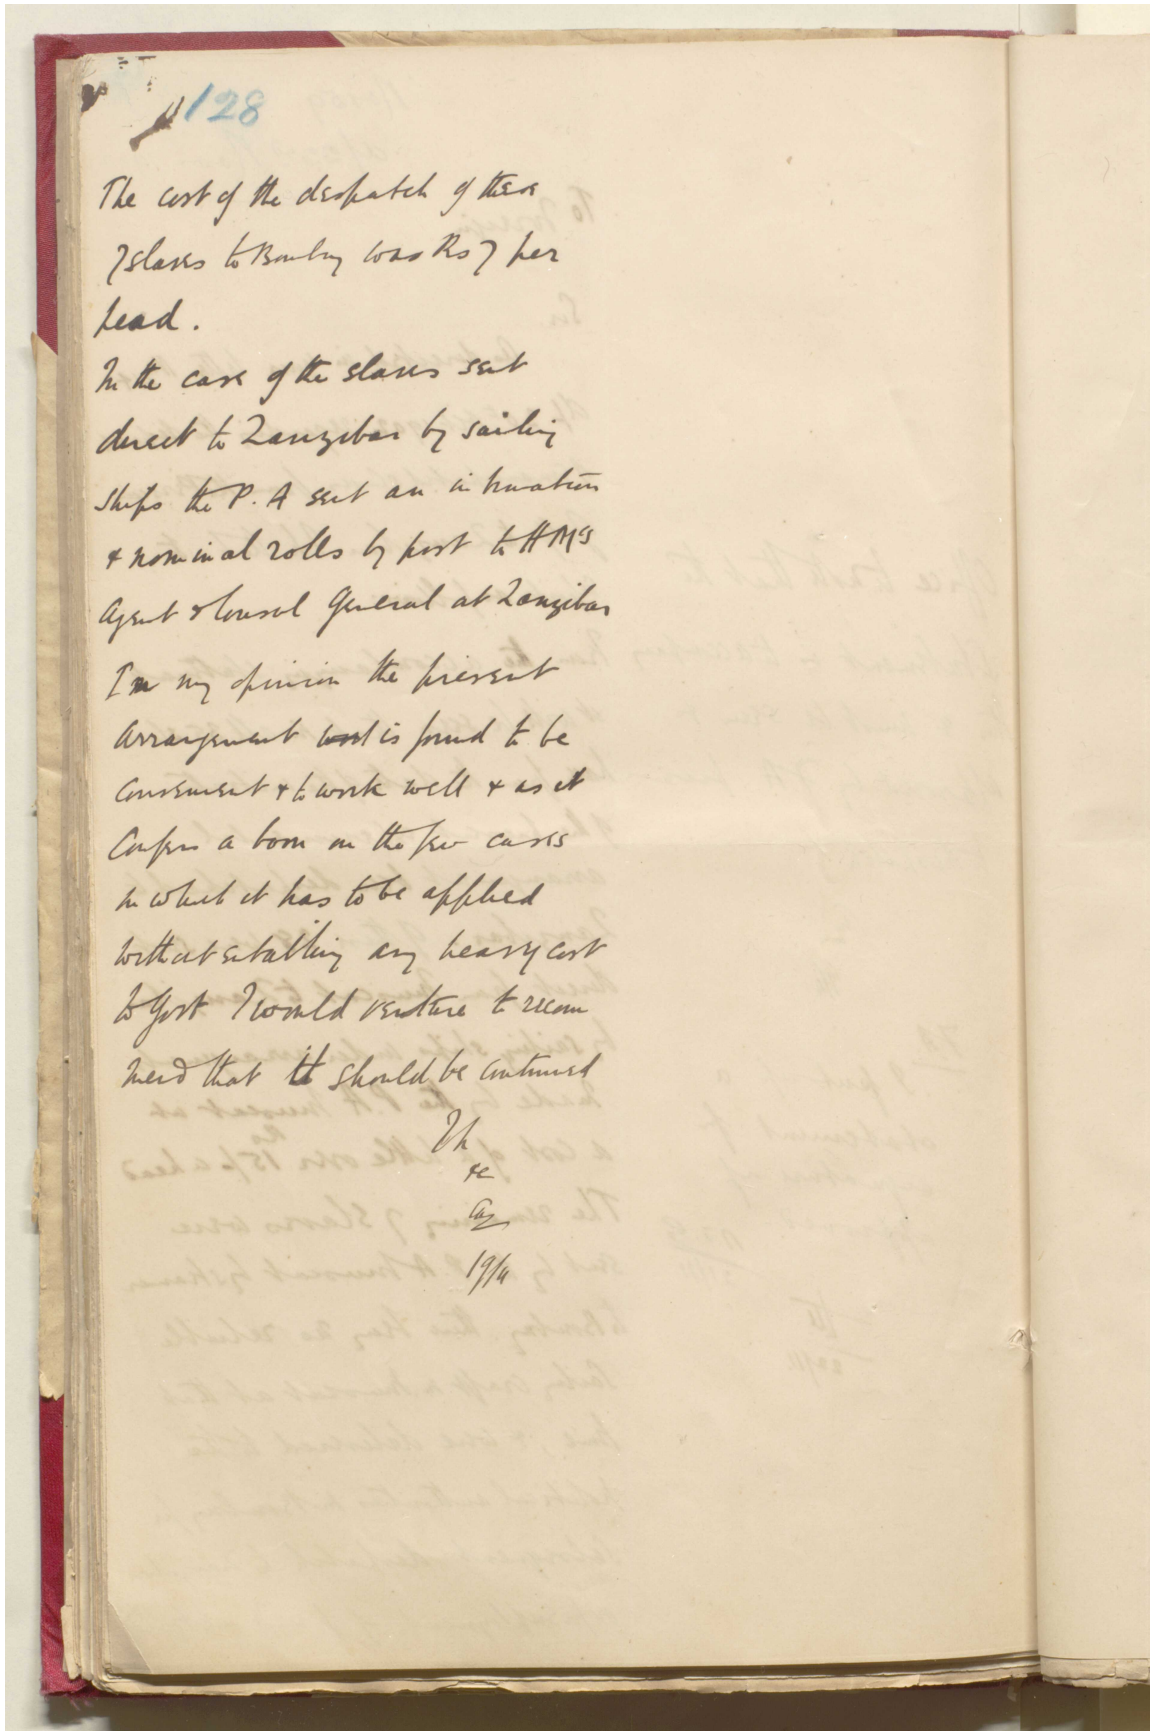 128
The cost of the despatch of these
7 slaves to Bombay was Rs 7 per
head.
In the case of the slaves sent
direct to Zanzibar by sailing
ships the P. A sent an intimation
& nominal rolls by post to HM's
Agent & Consul General at Zanzibar
In my opinion the present
arrangement is found to be
convenient & to work well & as it
confers a boon on the few cases
in which it has to be applied
without entailing any heavy cost
to Govt I would venture to recom
mend that it should be continued
&c
19/11